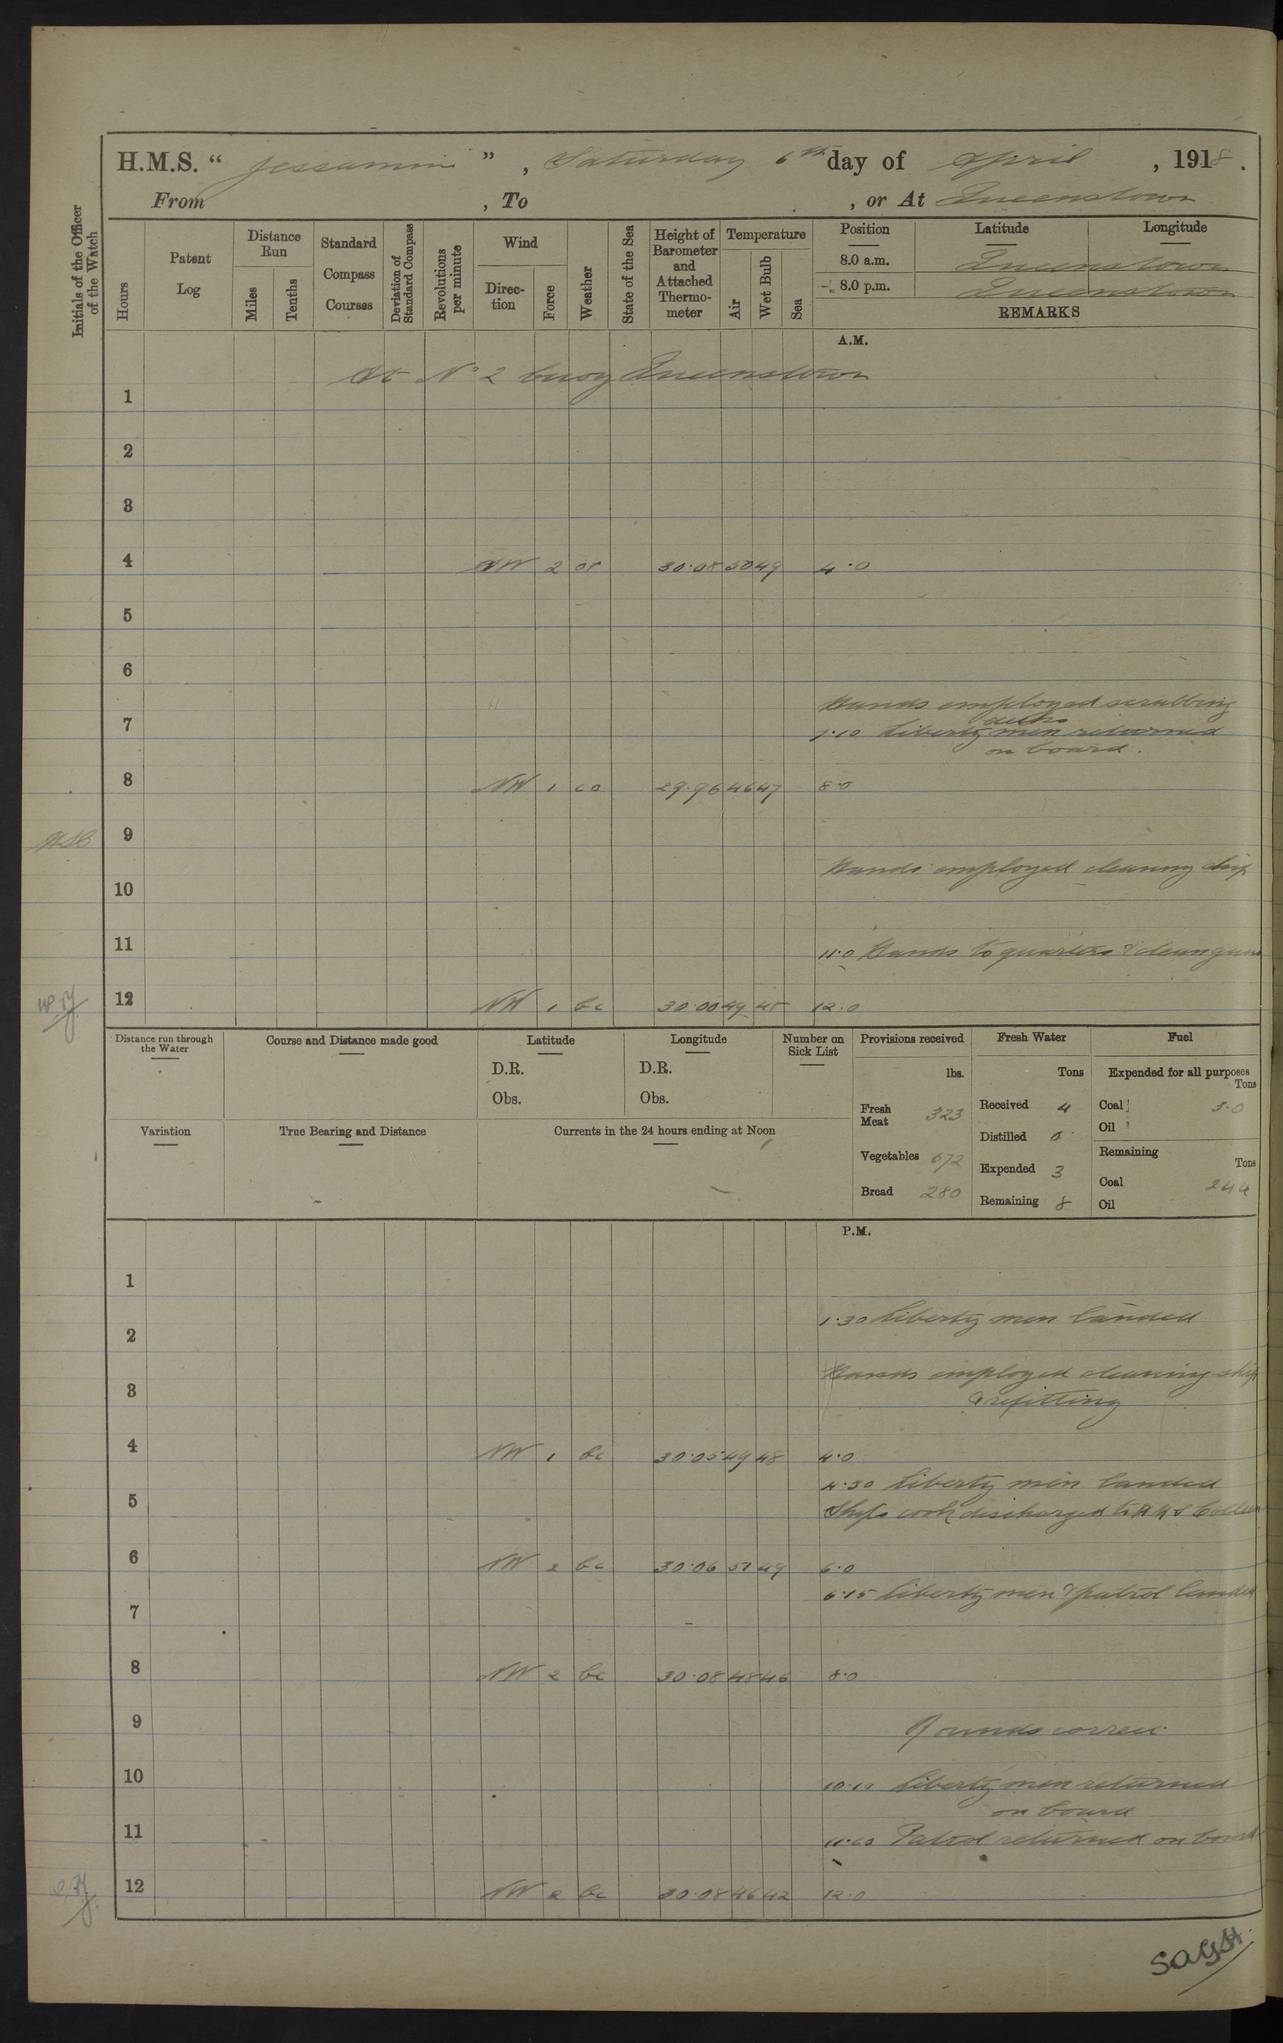 H.M.S. “ Jessamine ” , Saturday 6th day of April , 1918 .
From , To , or At Queenstown
Initials of the Officer of the Watch
Hours
Patent Log
Distance Run
Miles
Tenths
Standard Compass Courses
Deviation of Standard Compass
Revolutions per minute
Wind
Direction
Force
Weather
State of the Sea
Height of Barometer and Attached Thermometer
Temperature
Air
Wet Bulb
Sea
Position Latitude Longitude
8.0 a.m. Queenstown
8.0 p.m. Queenstown
REMARKS
A.M.
At No 2 buoy Queenstown
1
2
3
4 NW 2 or 30.08 50 49 4.0
5
6
Hands employed scrubbing
decks
7 7.10 Liberty men returned
on board.
8 NW 1 co 29.96 46 47 8.0
9
Hands employed cleaning ship
10
11 11.0 Hands to quarters & clean guns
12 NW 1 bc 30.00 49 48 12.0
Distance run through the Water
Course and Distance made good
Latitude
D.R.
Obs.
Longitude
D.R.
Obs.
Number on Sick List
Provisions received
lbs.
Fresh Meat 323
Vegetables 672
Bread 280
Fresh Water
Tons
Received 4
Distilled 0
Expended 3
Remaining 8
Fuel
Expended for all purposes
Tons
Coal 3.0
Oil
Remaining
Tons
Coal 244
Oil
Variation
True Bearing and Distance
Currents in the 24 hours ending at Noon
P.M.
1
1.30 Liberty men landed
2
Hands employed cleaning ship
3 & refitting
4 NW 1 bc 30.05 49 48 4.0
4.30 Liberty men landed
5 Ships cook discharged to HMS Colleen
6 NW 2 bc 30.06 51 49 6.0
6.15 Liberty men & patrol landed
7
8 NW 2 bc 30.08 48 46 8.0
9 Rounds correct
10 10.10 Liberty men returned
on board
11 Patrol returned on board
12 NW 2 bc 30.08 46 42 12.0